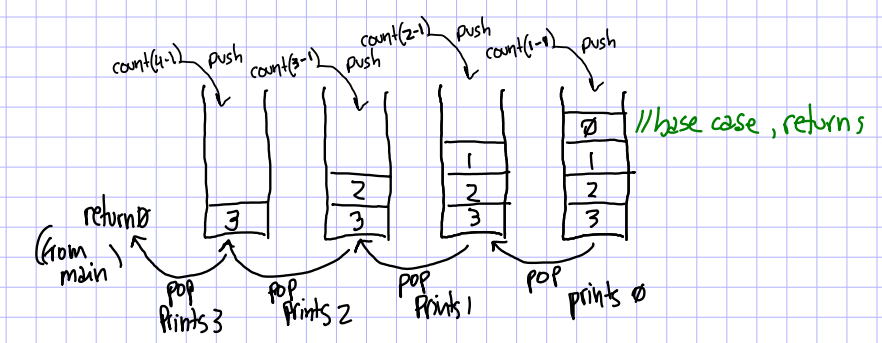 count(4-1) push
count(3-1) push
count(2-1) push
count(1-1) push
3
2
3
1
2
3
0
1
2
3
//base case, returns
return 0
(from
main)
pop
Prints 3
pop
Prints 2
pop
Prints 1
pop
prints 0